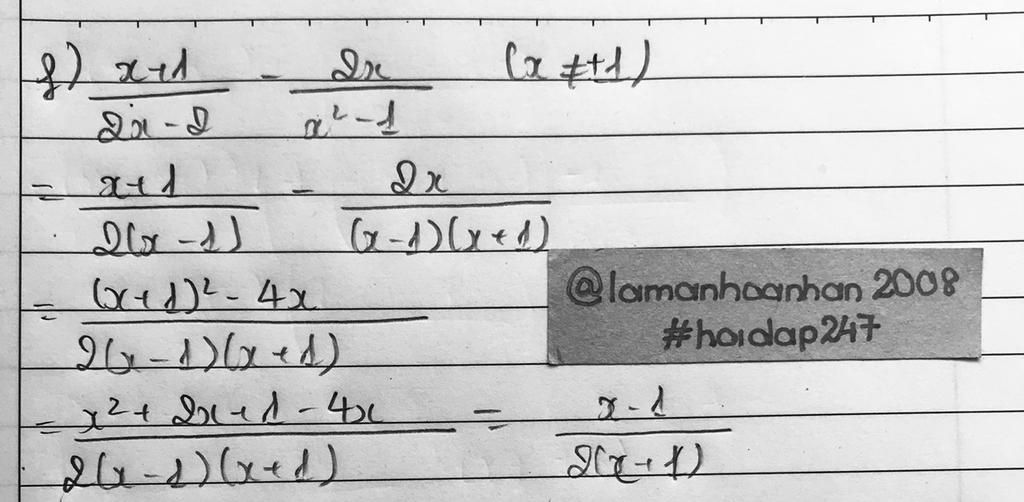 f) \frac{x+1}{2x-2} - \frac{2x}{x^2-1} (x ≠ ±1)
= \frac{x+1}{2(x-1)} - \frac{2x}{(x-1)(x+1)}
= \frac{(x+1)^2-4x}{2(x-1)(x+1)}
@lamanhoanhan 2008
#hoidap247
= \frac{x^2+2x+1-4x}{2(x-1)(x+1)} = \frac{x-1}{2(x+1)}